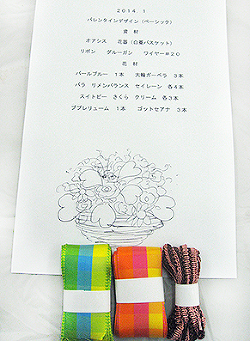 2014.1
バレンタインデザイン (ベーシック)
資材
オアシス 花器(白菱バスケット)
リボン グルーガン ワイヤー#20
花材
パールブルー 1本 大輪ガーベラ 3本
バラ リメンバランス セイレーン 各4本
スイトピー さくら クリーム 各3本
ブプレリューム 1本 ゴットセアナ 3本